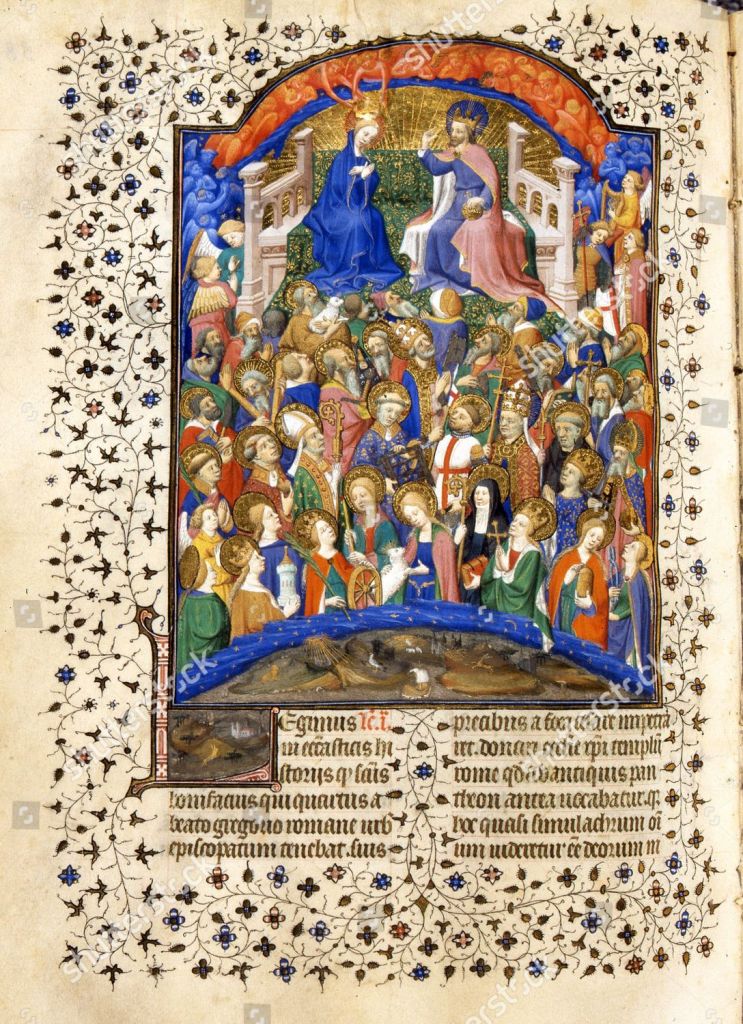 Legimus lc̄. i.
in ecc̄asticis hi
storiis q sc̄us
bonifacius qui quartus a
beato gregorio romane urb
episcopatum tenebat. suis
precibus a foca cesare impetra
ret. donari eccie xp̄i templū
rome qd ab antiquis pan
theon antea uocabatur. q
hoc quasi simulachrum oī
um uideretur ēē deorum in
shutterstock